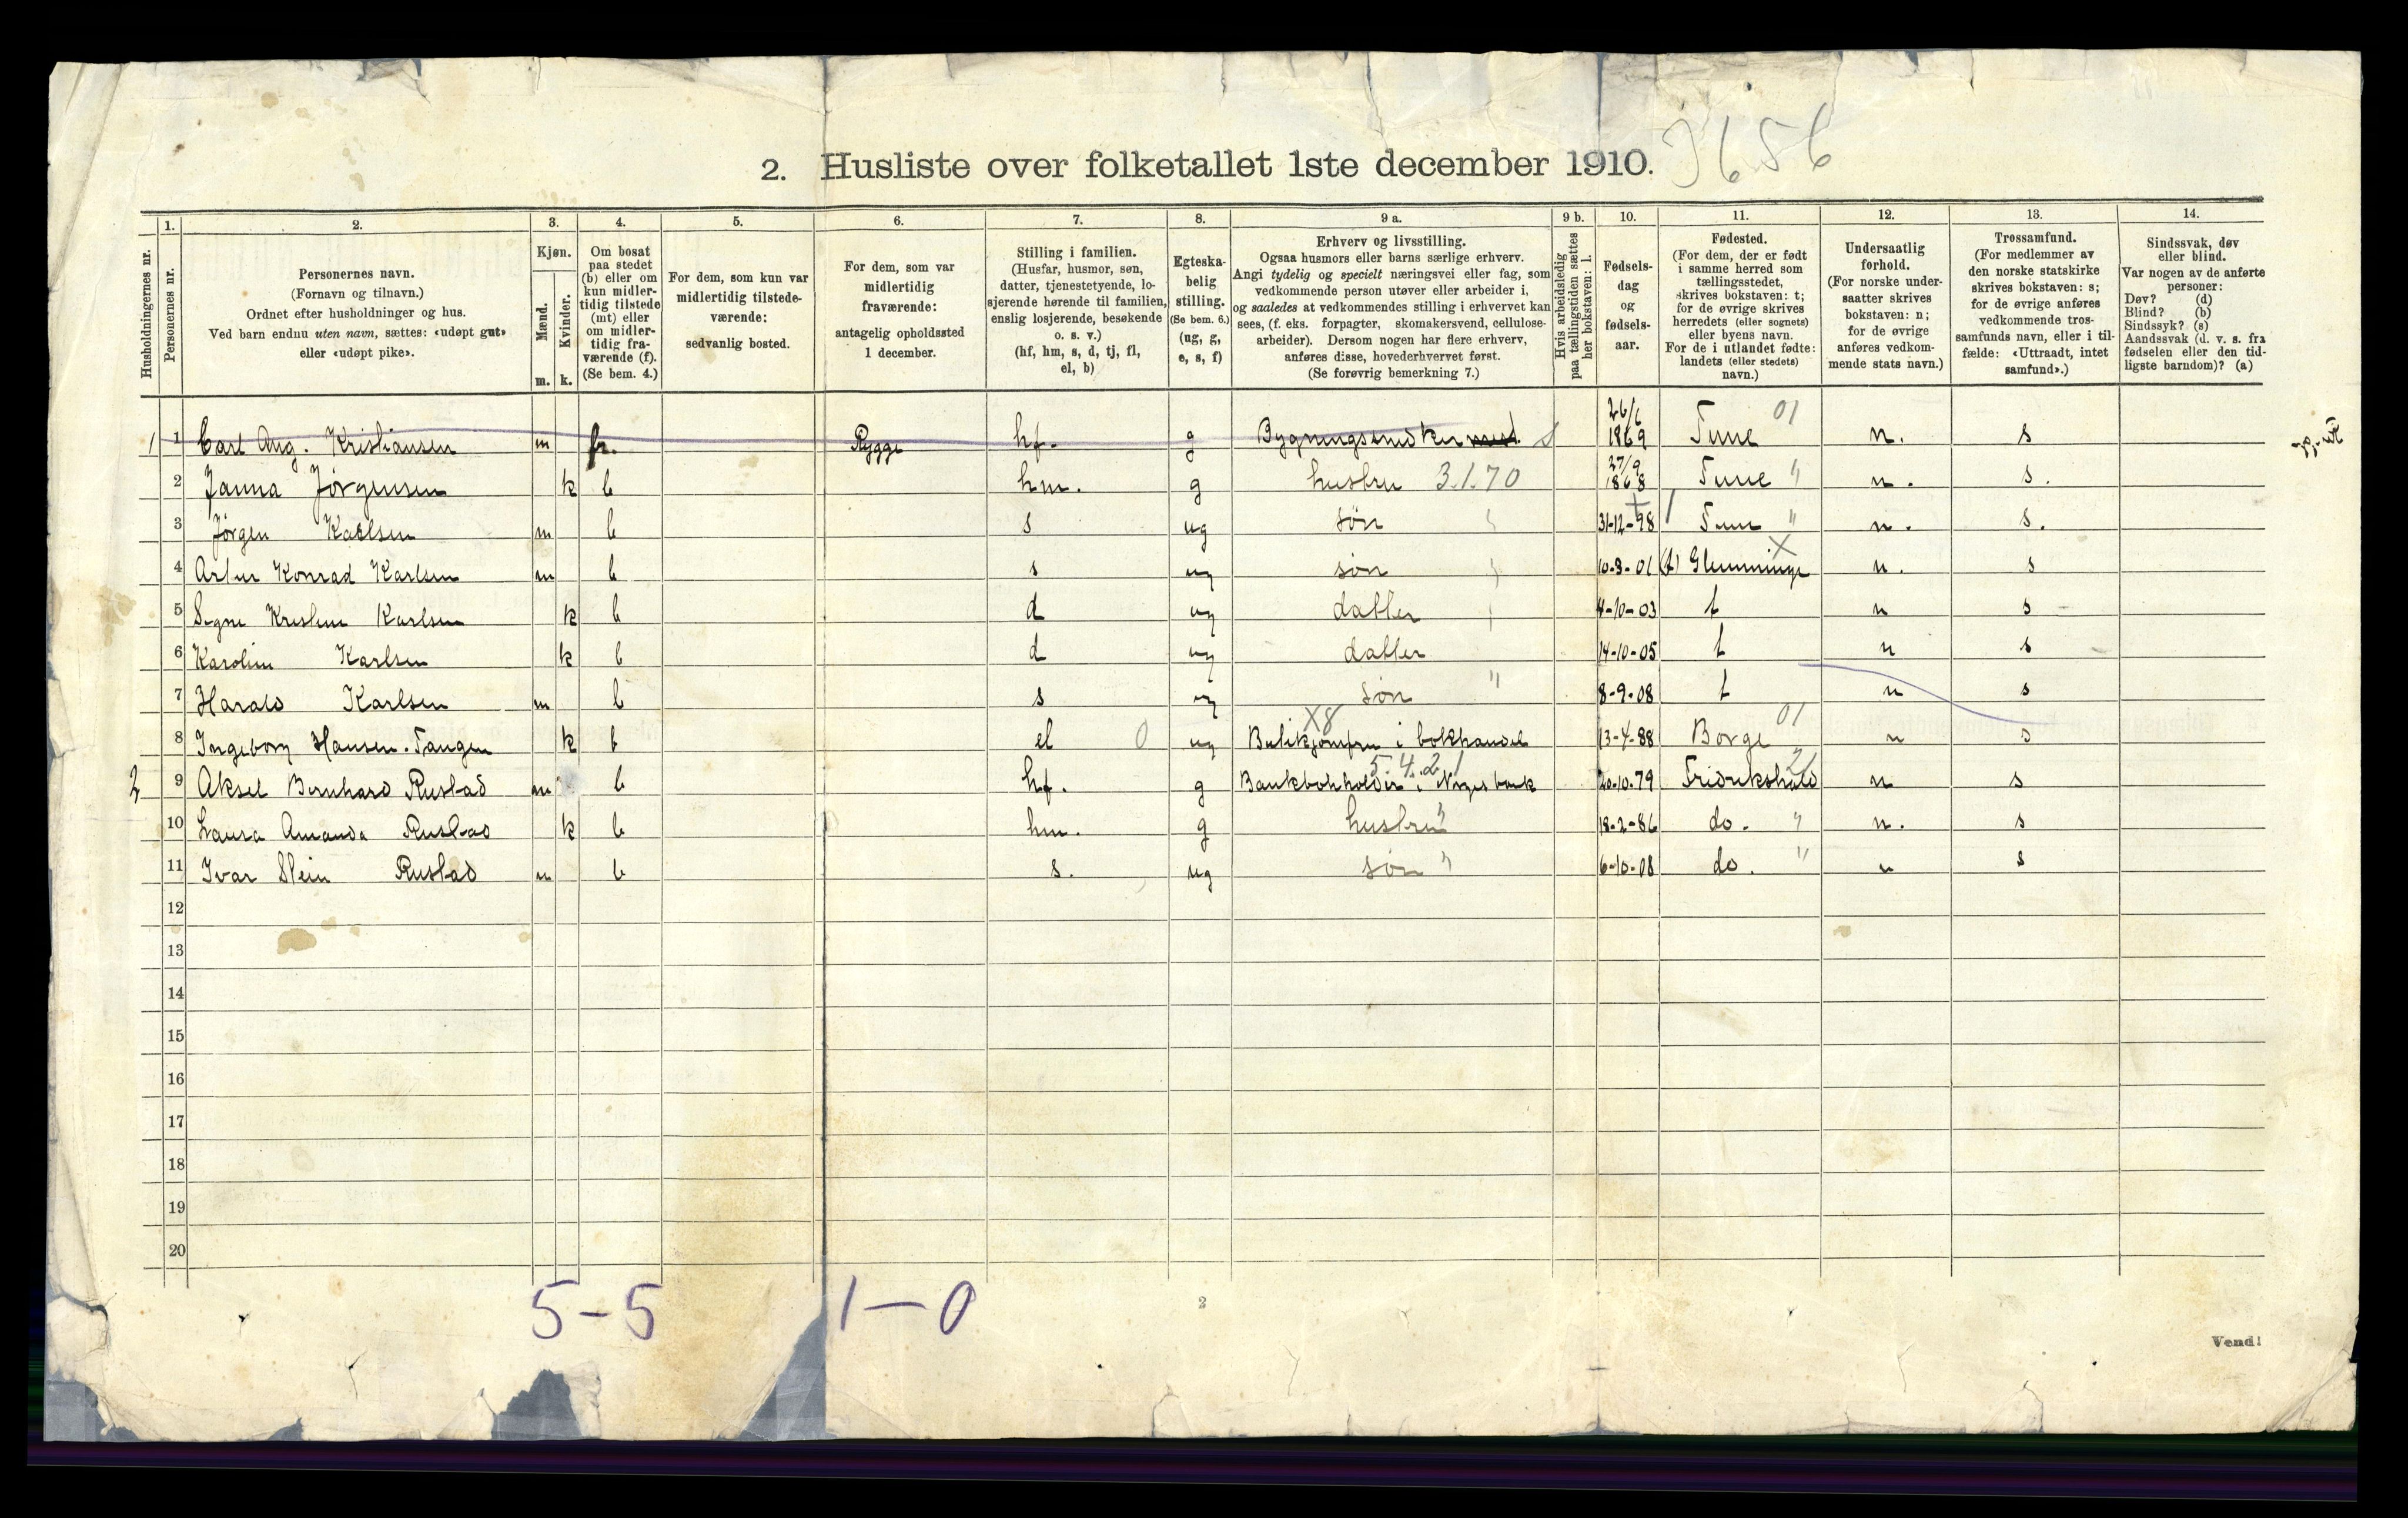 2. Husliste over folketallet 1ste december 1910. 3656
Husholdningernes nr.
1. Personernes nr.
2. Personernes navn.
(Fornavn og tilnavn.)
Ordnet efter husholdninger og hus.
Ved barn endnu uten navn, sættes: «udøpt gut»
eller «udøpt pike».
3. Kjøn.
Mænd. m.
Kvinder. k.
4. Om bosat
paa stedet
(b) eller om
kun midler-
tidig tilstede
(mt) eller
om midler-
tidig fra-
værende (f).
(Se bem. 4.)
5. For dem, som kun var
midlertidig tilstede-
værende:
sedvanlig bosted.
6. For dem, som var
midlertidig
fraværende:
antagelig opholdssted
1 december.
7. Stilling i familien.
(Husfar, husmor, søn,
datter, tjenestetyende, lo-
sjerende hørende til familien,
enslig losjerende, besøkende
o. s. v.)
(hf, hm, s, d, tj, fl,
el, b)
8. Egteska-
belig
stilling.
(Se bem. 6.)
(ug, g,
e, s, f)
9 a. Erhverv og livsstilling.
Ogsaa husmors eller barns særlige erhverv.
Angi tydelig og specielt næringsvei eller fag, som
vedkommende person utøver eller arbeider i,
og saaledes at vedkommendes stilling i erhvervet kan
sees, (f. eks. forpagter, skomakersvend, cellulose-
arbeider). Dersom nogen har flere erhverv,
anføres disse, hovederhvervet først.
(Se forøvrig bemerkning 7.)
9 b. Hvis arbeidsledig
paa tællingstiden sættes
her bokstaven: l.
10. Fødsels-
dag
og
fødsels-
aar.
11. Fødested.
(For dem, der er født
i samme herred som
tællingsstedet,
skrives bokstaven: t;
for de øvrige skrives
herredets (eller sognets)
eller byens navn.
For de i utlandet fødte:
landets (eller stedets)
navn.)
12. Undersaatlig
forhold.
(For norske under-
saatter skrives
bokstaven: n;
for de øvrige
anføres vedkom-
mende stats navn.)
13. Trossamfund.
(For medlemmer av
den norske statskirke
skrives bokstaven: s;
for de øvrige anføres
vedkommende tros-
samfunds navn, eller i til-
fælde: «Uttraadt, intet
samfund».)
14. Sindssvak, døv
eller blind.
Var nogen av de anførte
personer:
Døv? (d)
Blind? (b)
Sindssyk? (s)
Aandssvak (d. v. s. fra
fødselen eller den tid-
ligste barndom)? (a)
1 1 Carl Aug. Kristiansen m fr. Rygge hf. g Bygningssnedker 26/6 1869 Tune 01 n. s
2 Janna Jörgensen k b hm. g hustru 3.1.70 27/9 1868 Tune " n. s.
3 Jörgen Karlsen m b s ug søn 31-12-98 Tune " n. s.
4 Artur Konrad Karlsen m b s ug søn 10-3-01 (t) Glemminge n. s
5 Signe Kristine Karlsen k b d ug datter 4-10-03 t n s
6 Karolin Karlsen k b d ug datter 14-10-05 t n s
7 Harald Karlsen m b s ug søn " 8-9-08 t n s
8 Ingeborg Hansen. Tangen k b el 0 ug Butikjomfru i bokhandel X8 13-4-88 Borge 01 n s
2 9 Aksel Bernhard Rustad m b hf. g Bankbokholder i Norges bank 5.4.2.1 20-10-79 Fredrikshald 21 n s
10 Laura Amanda Rustad k b hm. g hustru " 18-2-86 do. " n. s
11 Ivar Stein Rustad m b s. ug søn " 6-10-08 do. " n s
12
13
14
15
16
17
18
19
20
5-5 1-0
2
Vend!